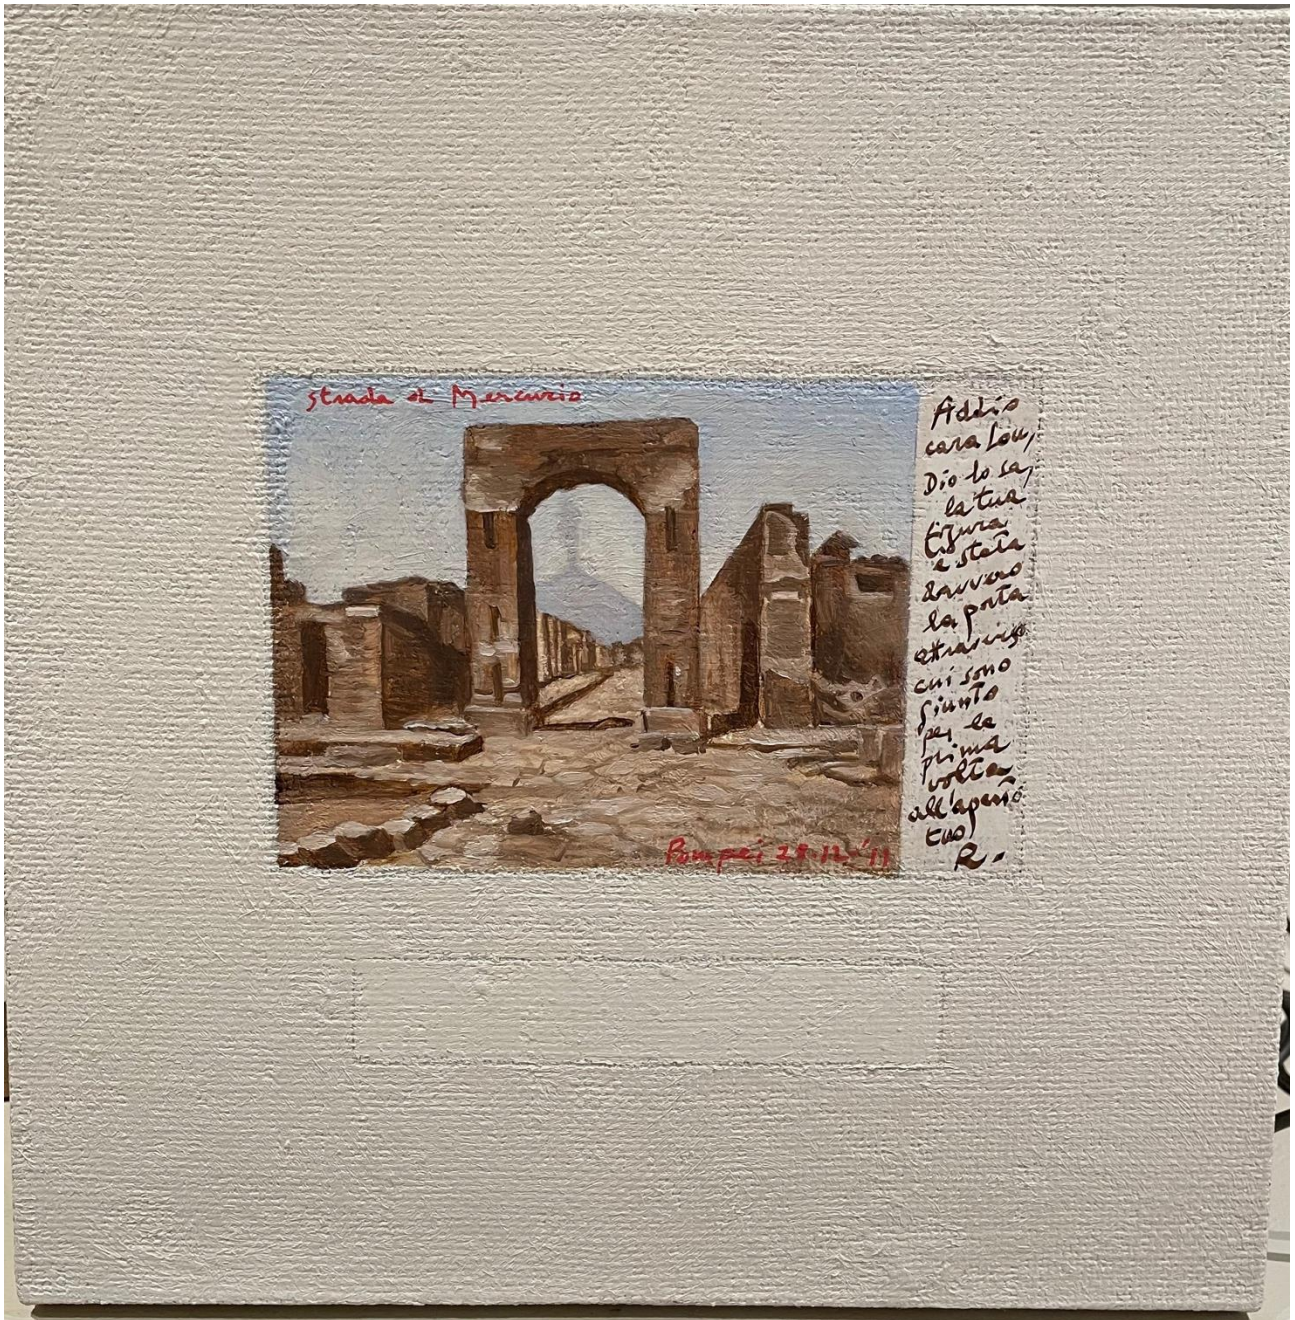 strada di Mercurio
Addio
cara Lou,
Dio lo sa,
la tua
figura
è stata
davvero
la porta
attraverso
cui sono
giunto
per la
prima
volta
all'aperto
tuo
R.
Pompei 28.12.'11